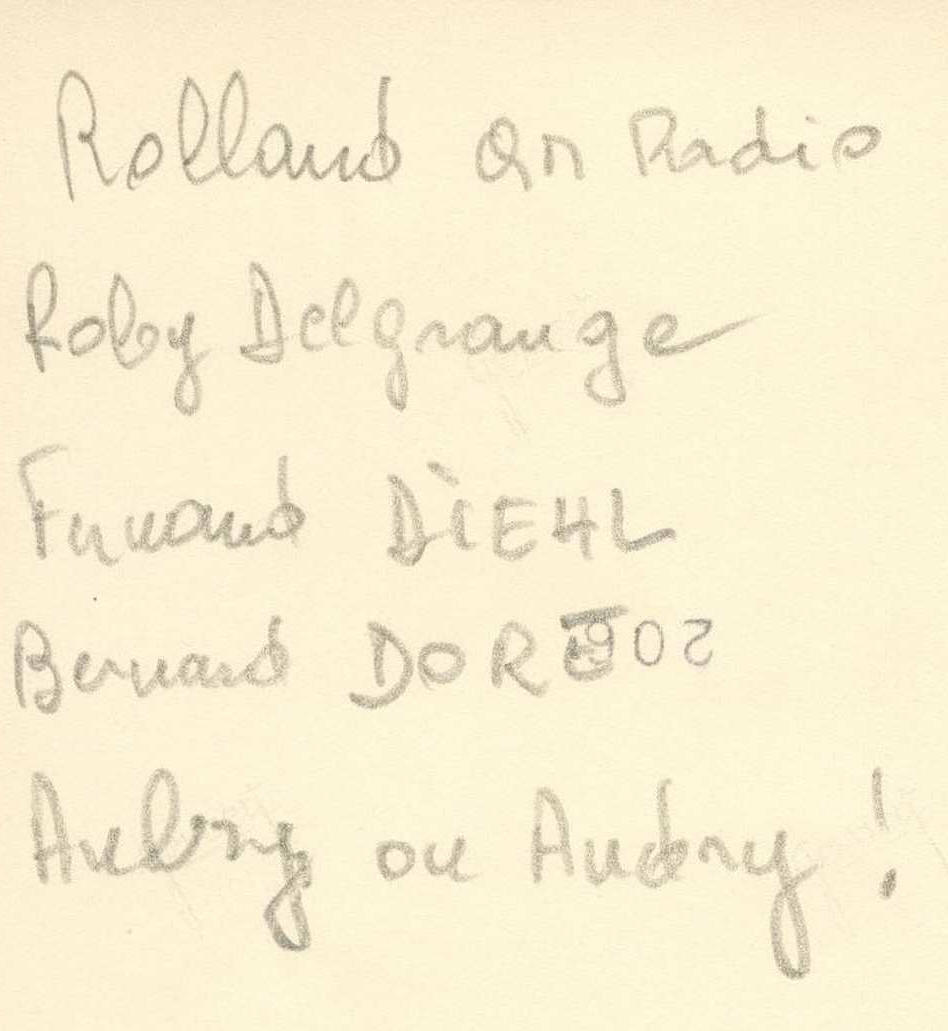 Rolland QM Radio
Roby Delgrange
Fernand DIEHL
Bernard
Aubry ou Audry !